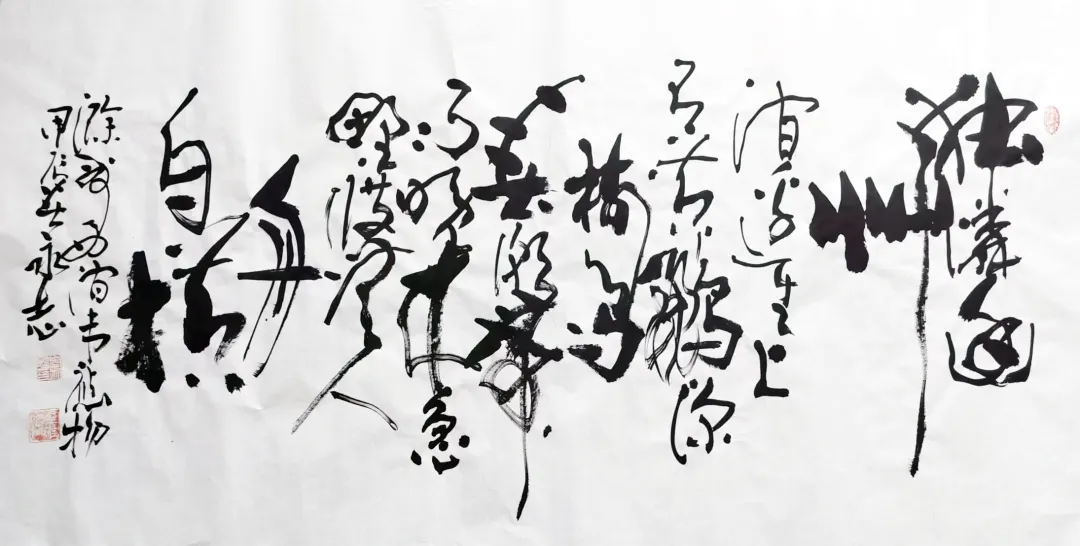 独憐幽
草
涧边生上
有黄鹂深
树鸣
春潮带
雨晚来急
野渡无人
舟
自横
滁州西涧韦應物
甲辰春永志